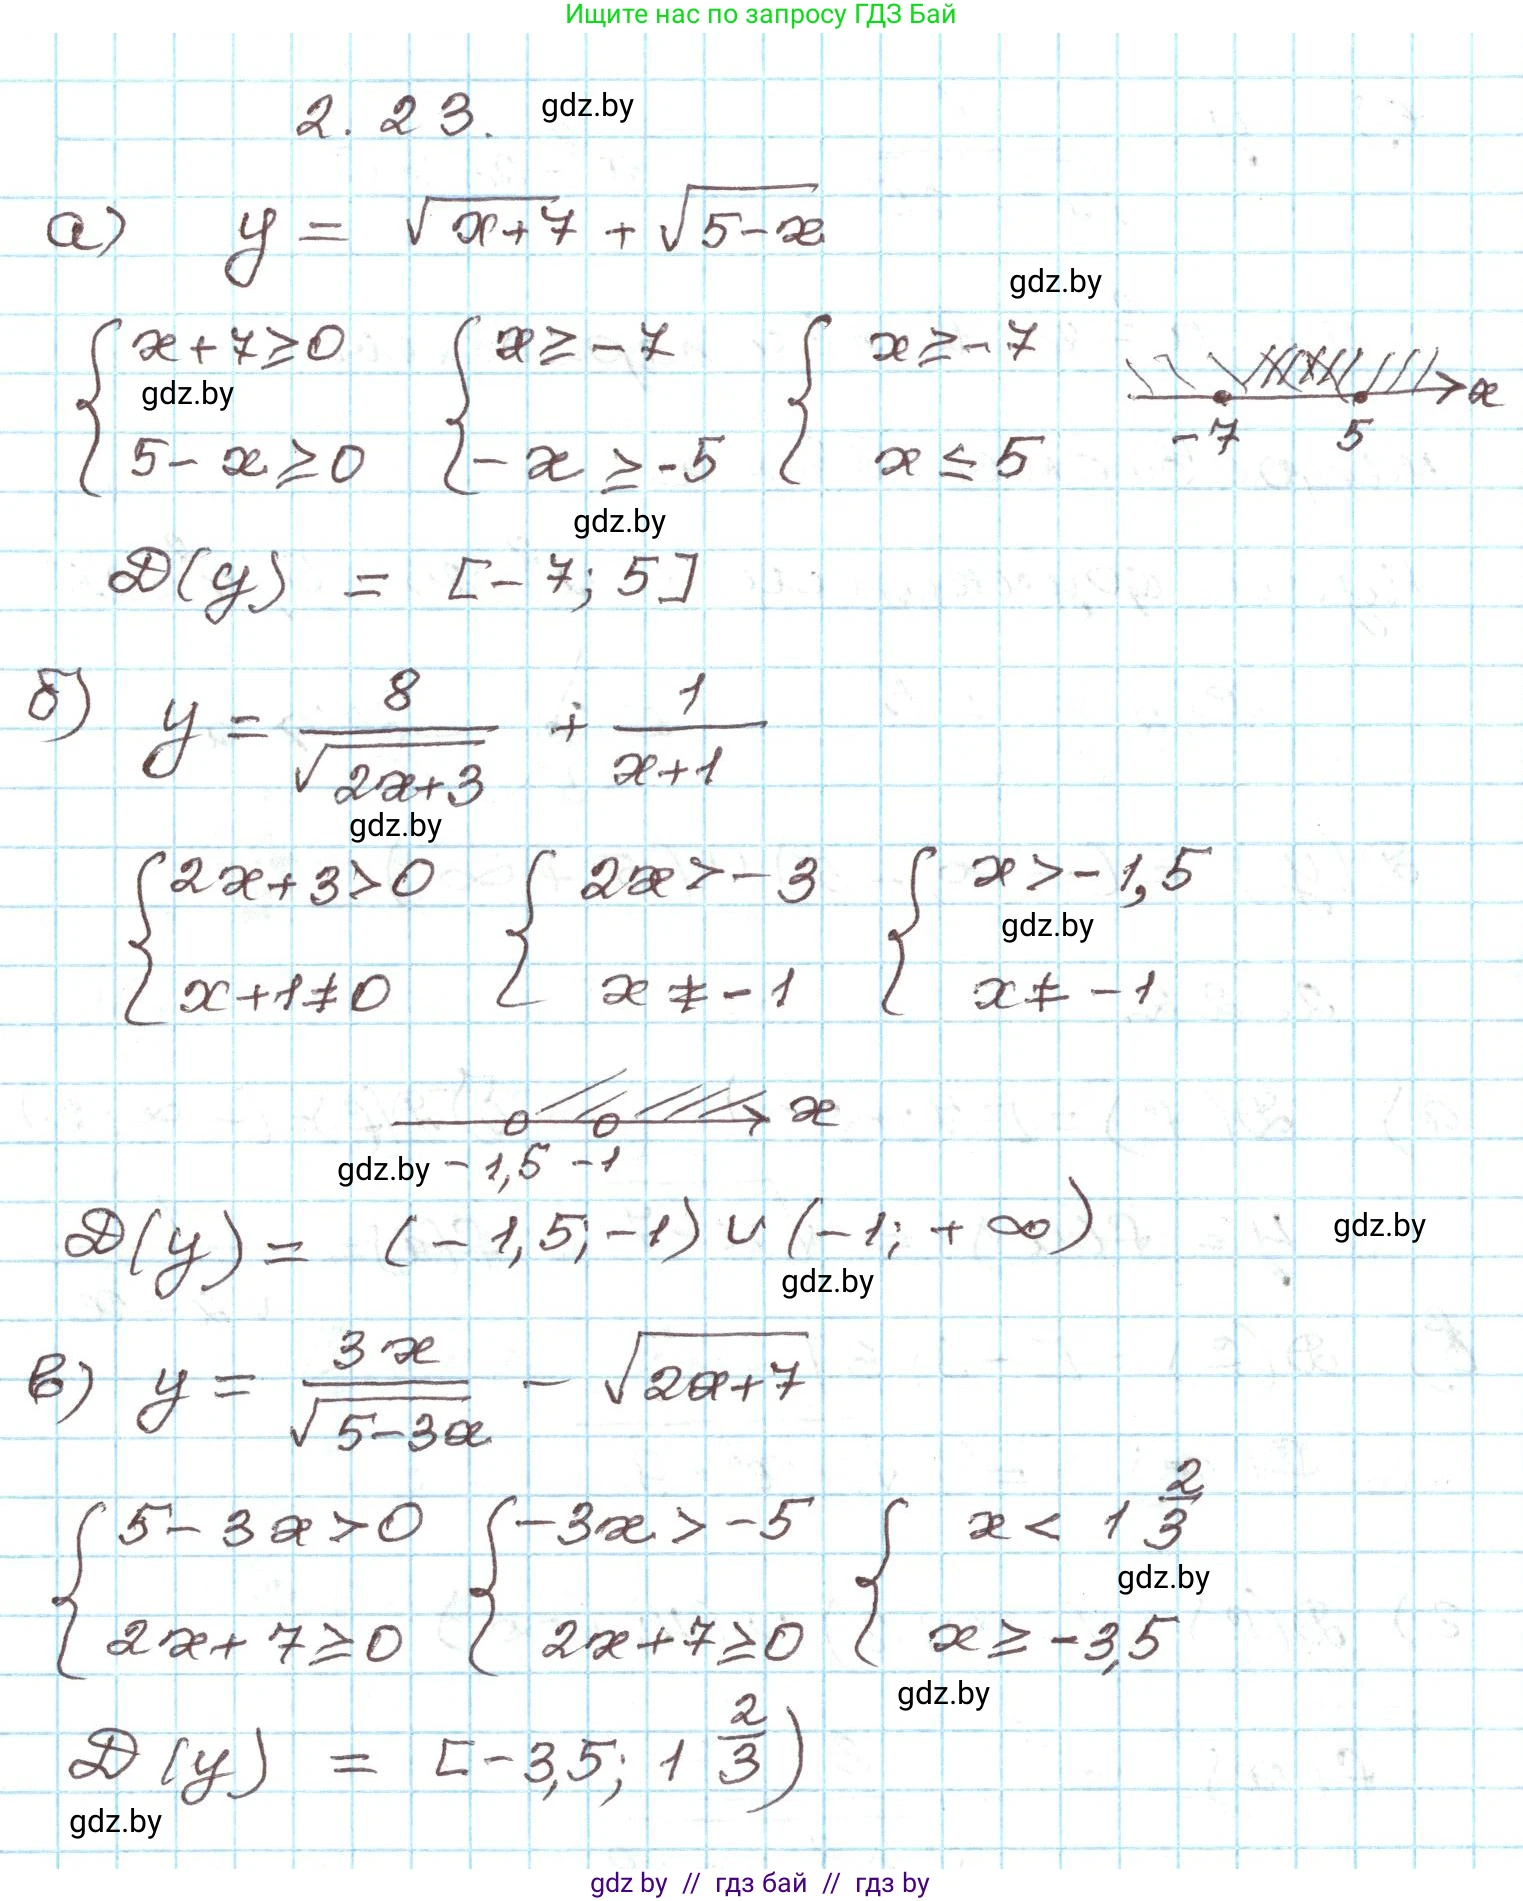 Ищите нас по запросу ГДЗ Бай
2.23. gdz.by
а) y = √(x+7) + √(5-x)
gdz.by
{ x+7≥0 { x≥-7 { x≥-7
gdz.by
x
-7 5
5-x≥0 -x≥-5 x≤5
gdz.by
D(y) = [-7; 5]
б) y = 8/√(2x+3) + 1/(x+1)
gdz.by
{ 2x+3>0 { 2x>-3 { x>-1,5
gdz.by
x+1≠0 x≠-1 x≠-1
x
gdz.by -1,5 -1
D(y) = (-1,5; -1) ∪ (-1; +∞)
gdz.by
gdz.by
в) y = 3x/√(5-3x) - √(2x+7)
{ 5-3x>0 { -3x>-5 { x< 1 2/3
gdz.by
2x+7≥0 2x+7≥0 x≥-3,5
gdz.by
D(y) = [-3,5; 1 2/3)
gdz.by
gdz by // гдз бай // гдз by